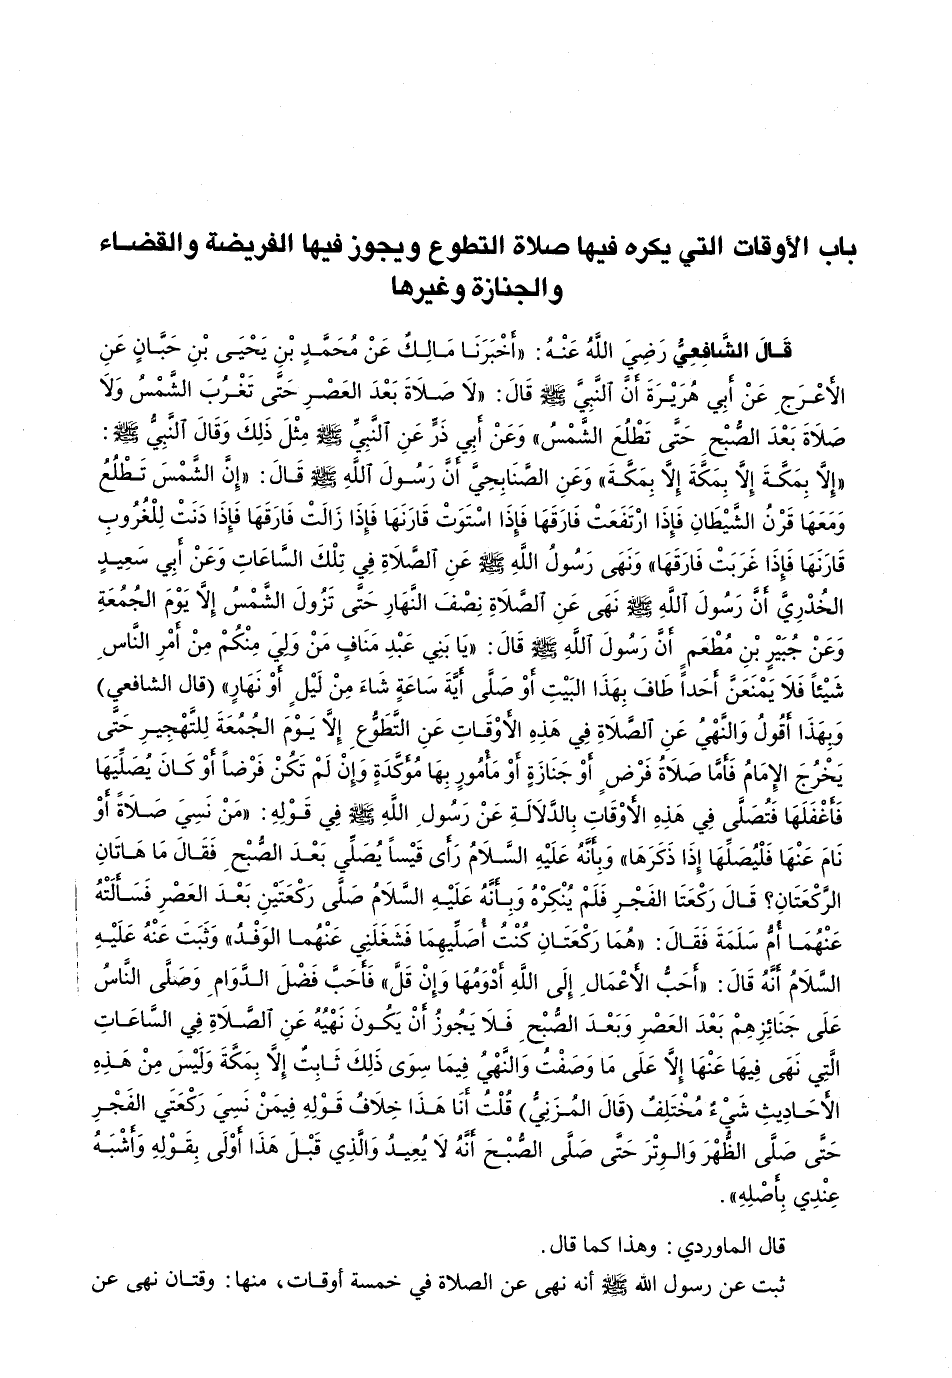 باب الأوقات التي يكره فيها صلاة التطوع ويجوز فيها الفريضة والقضاء
والجنازة وغيرها
قَالَ الشَّافِعِيُّ رَضِيَ اللَّهُ عَنْهُ: «أَخْبَرَنَا مَالِكٌ عَنْ مُحَمَّدِ بْنِ يَحْيَى بْنِ حَبَّانٍ عَنِ
الأَعْرَجِ عَنْ أَبِي هُرَيْرَةَ أَنَّ النَّبِيَّ ﷺ قَالَ: «لَا صَلَاةَ بَعْدَ العَصْرِ حَتَّى تَغْرُبَ الشَّمْسُ وَلَا
صَلَاةَ بَعْدَ الصُّبْحِ حَتَّى تَطْلُعَ الشَّمْسُ» وَعَنْ أَبِي ذَرٍّ عَنِ النَّبِيِّ ﷺ مِثْلَ ذَلِكَ وَقَالَ النَّبِيُّ ﷺ:
«إِلَّا بِمَكَّةَ إِلَّا بِمَكَّةَ إِلَّا بِمَكَّةَ» وَعَنِ الصَّنَابِحِيِّ أَنَّ رَسُولَ اللَّهِ ﷺ قَالَ: «إِنَّ الشَّمْسَ تَطْلُعُ
وَمَعَهَا قَرْنُ الشَّيْطَانِ فَإِذَا ارْتَفَعَتْ فَارَقَهَا فَإِذَا اسْتَوَتْ قَارَنَهَا فَإِذَا زَالَتْ فَارَقَهَا فَإِذَا دَنَتْ لِلْغُرُوبِ
قَارَنَهَا فَإِذَا غَرَبَتْ فَارَقَهَا» وَنَهَى رَسُولُ اللَّهِ ﷺ عَنِ الصَّلَاةِ فِي تِلْكَ السَّاعَاتِ وَعَنْ أَبِي سَعِيدٍ
الخُدْرِيِّ أَنَّ رَسُولَ اللَّهِ ﷺ نَهَى عَنِ الصَّلَاةِ نِصْفَ النَّهَارِ حَتَّى تَزُولَ الشَّمْسُ إِلَّا يَوْمَ الجُمُعَةِ
وَعَنْ جُبَيْرِ بْنِ مُطْعَمٍ أَنَّ رَسُولَ اللَّهِ ﷺ قَالَ: «يَا بَنِي عَبْدِ مَنَافٍ مَنْ وَلِيَ مِنْكُمْ مِنْ أَمْرِ النَّاسِ
شَيْئاً فَلَا يَمْنَعَنَّ أَحَداً طَافَ بِهَذَا البَيْتِ أَوْ صَلَّى أَيَّةَ سَاعَةٍ شَاءَ مِنْ لَيْلٍ أَوْ نَهَارٍ» (قال الشافعي)
وَبِهَذَا أَقُولُ وَالنَّهْيُ عَنِ الصَّلَاةِ فِي هَذِهِ الأَوْقَاتِ عَنِ التَّطَوُّعِ إِلَّا يَوْمَ الجُمُعَةَ لِلتَّهْجِيرِ حَتَّى
يَخْرُجَ الإِمَامُ فَأَمَّا صَلَاةُ فَرْضٍ أَوْ جَنَازَةٍ أَوْ مَأْمُورٍ بِهَا مُؤَكَّدَةٍ وَإِنْ لَمْ تَكُنْ فَرْضاً أَوْ كَانَ يُصَلِّيَهَا
فَأَغْفَلَهَا فَتُصَلَّى فِي هَذِهِ الأَوْقَاتِ بِالدَّلَالَةِ عَنْ رَسُولِ اللَّهِ ﷺ فِي قَوْلِهِ: «مَنْ نَسِيَ صَلَاةً أَوْ
نَامَ عَنْهَا فَلْيُصَلِّهَا إِذَا ذَكَرَهَا» وَبِأَنَّهُ عَلَيْهِ السَّلَامُ رَأَى قَيْساً يُصَلِّي بَعْدَ الصُّبْحِ فَقَالَ مَا هَاتَانِ
الرَّكْعَتَانِ؟ قَالَ رَكْعَتَا الفَجْرِ فَلَمْ يُنْكِرْهُ وَبِأَنَّهُ عَلَيْهِ السَّلَامُ صَلَّى رَكْعَتَيْنِ بَعْدَ العَصْرِ فَسَأَلَتْهُ
عَنْهُمَا أُمُّ سَلَمَةَ فَقَالَ: «هُمَا رَكْعَتَانِ كُنْتُ أُصَلِّيهِمَا فَشَغَلَنِي عَنْهُمَا الوَفْدُ» وَثَبَتَ عَنْهُ عَلَيْهِ
السَّلَامُ أَنَّهُ قَالَ: «أَحَبُّ الأَعْمَالِ إِلَى اللَّهِ أَدْوَمُهَا وَإِنْ قَلَّ» فَأَحَبَّ فَضْلَ الدَّوَامِ وَصَلَّى النَّاسُ
عَلَى جَنَائِزِهِمْ بَعْدَ العَصْرِ وَبَعْدَ الصُّبْحِ فَلَا يَجُوزُ أَنْ يَكُونَ نَهْيُهُ عَنِ الصَّلَاةِ فِي السَّاعَاتِ
الَّتِي نَهَى فِيهَا عَنْهَا إِلَّا عَلَى مَا وَصَفْتُ وَالنَّهْيُ فِيمَا سِوَى ذَلِكَ ثَابِتٌ إِلَّا بِمَكَّةَ وَلَيْسَ مِنْ هَذِهِ
الأَحَادِيثِ شَيْءٌ مُخْتَلِفٌ (قَالَ المُزَنِيُّ) قُلْتُ أَنَا هَذَا خِلَافُ قَوْلِهِ فِيمَنْ نَسِيَ رَكْعَتَي الفَجْرِ
حَتَّى صَلَّى الظُّهْرَ وَالوِتْرَ حَتَّى صَلَّى الصُّبْحَ أَنَّهُ لَا يُعِيدُ وَالَّذِي قَبْلَ هَذَا أَوْلَى بِقَوْلِهِ وَأَشْبَهُ
عِنْدِي بِأَصْلِهِ».
قال الماوردي: وهذا كما قال.
ثبت عن رسول الله ﷺ أنه نهى عن الصلاة في خمسة أوقات، منها: وقتان نهى عن